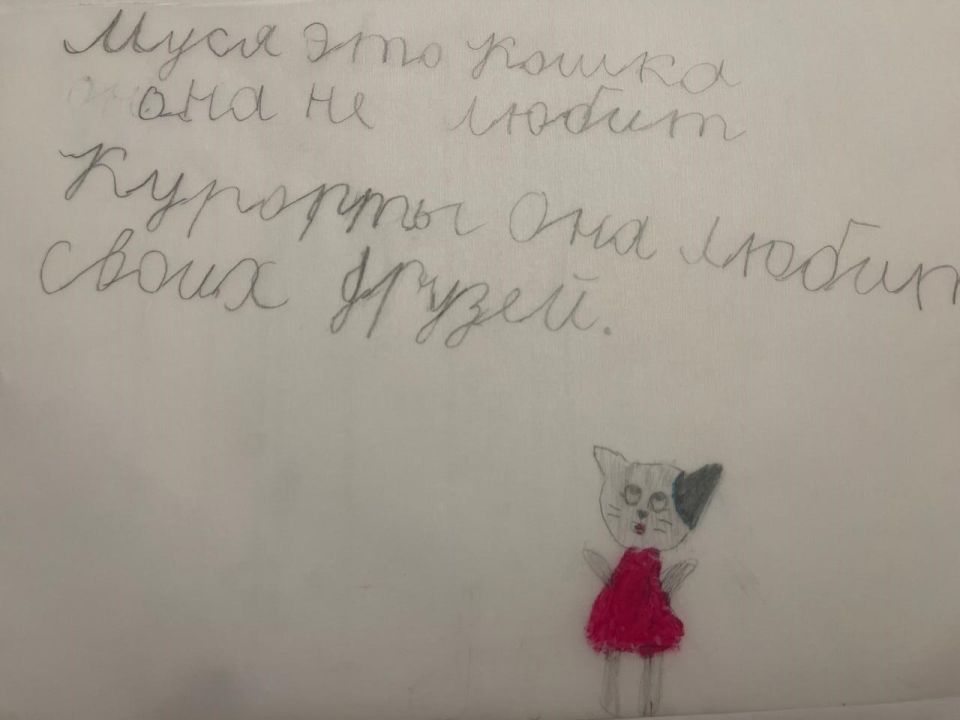 Муся это кошка
она не любит
Курорты она любит
своих друзей.